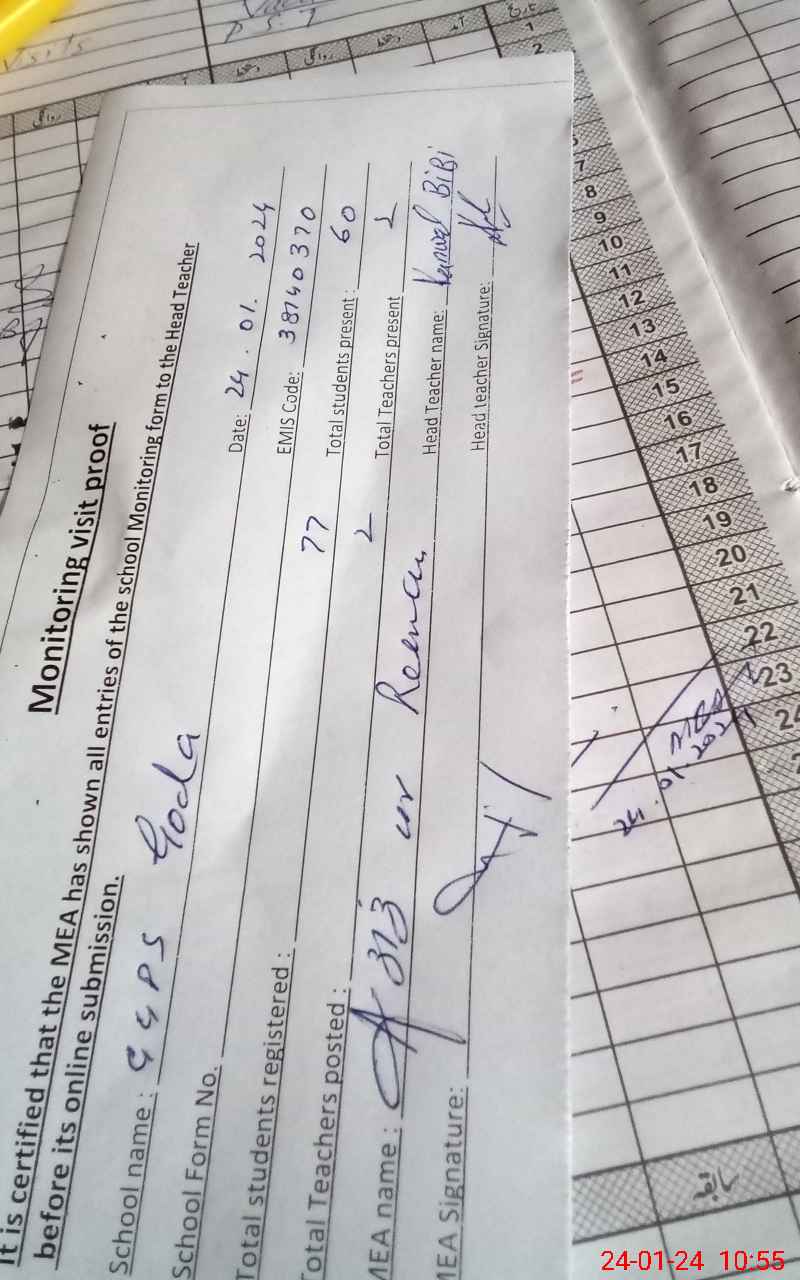 Monitoring visit proof
It is certified that the MEA has shown all entries of the school Monitoring form to the Head Teacher
before its online submission.
School name : GGPS Goda Date: 24.01.2024
School Form No. EMIS Code: 38140370
Total students registered : 77 Total students present : 60
Total Teachers posted : 2 Total Teachers present 2
MEA name : Aziz ur Rehman Head Teacher name: Kanwal BiBi
MEA Signature: Head teacher Signature:
تاریخ
آمد
دستخط
روانگی
1
2
7
8
9
10
11
12
13
14
15
16
17
18
19
20
21
22
23
24
MEA
24.01.2024
سابقہ
24-01-24 10:55